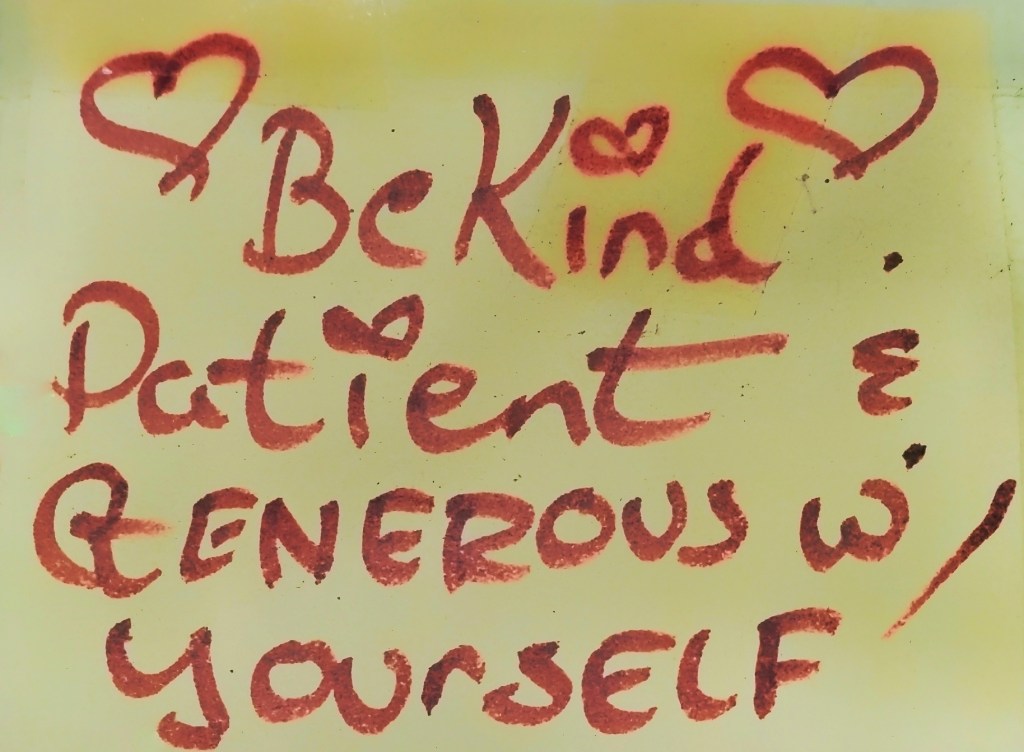 Be Kind
Patient &
GENEROUS w/
YourSELF